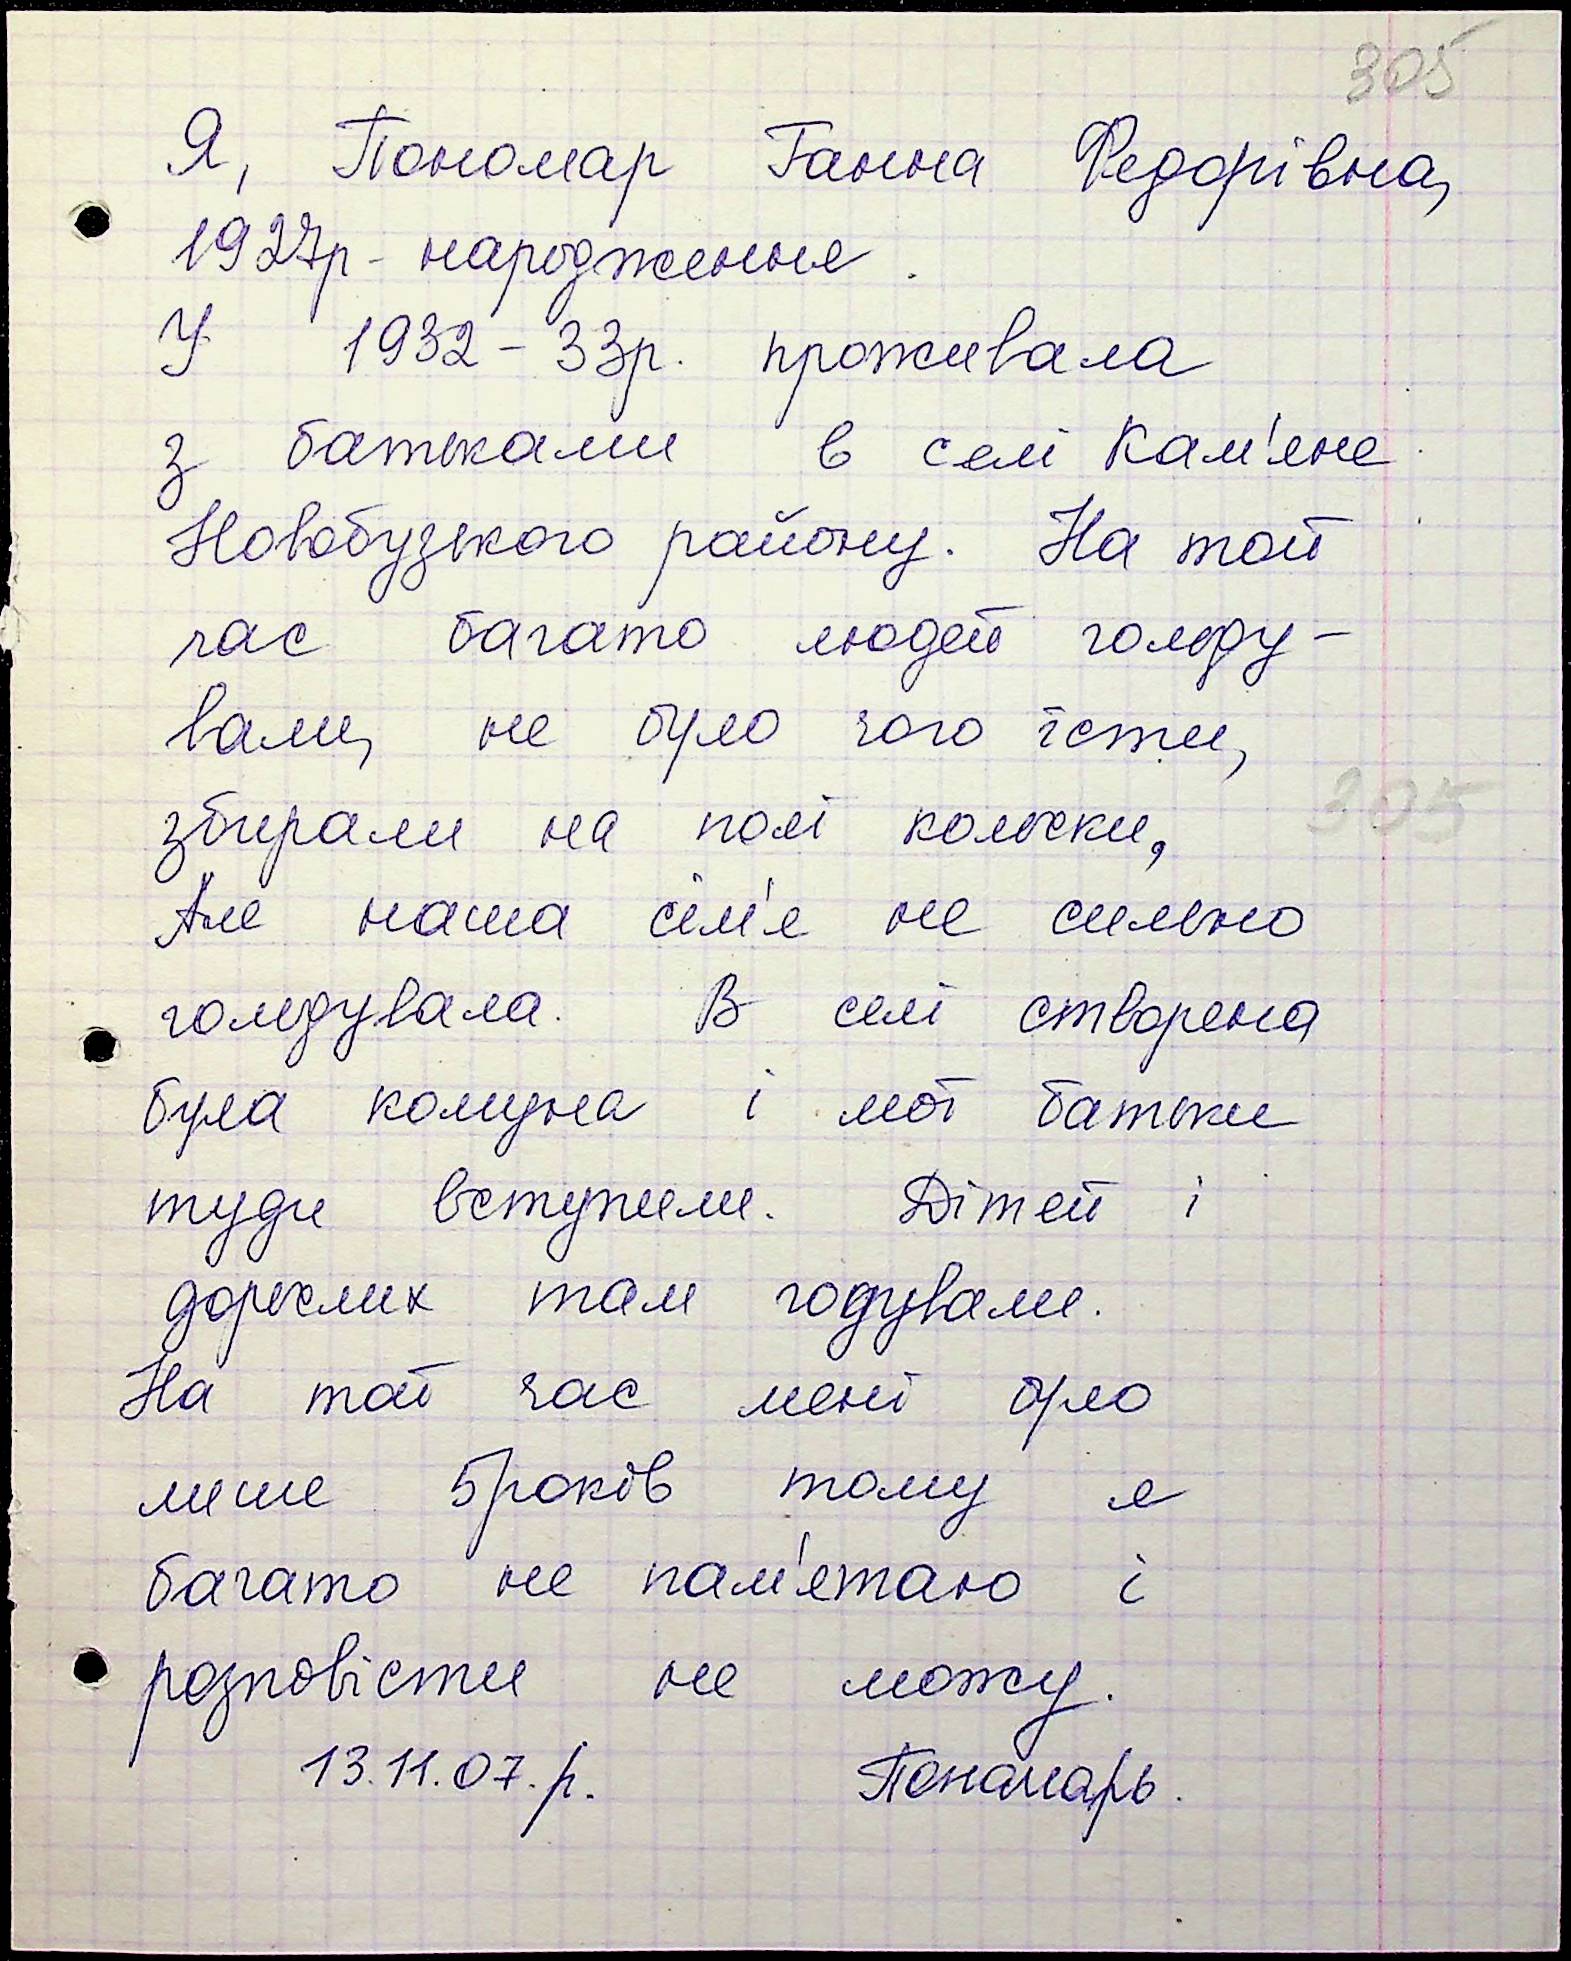 305
Я, Пономар Ганна Федорівна,
1927р - народження.
У 1932 - 33р. проживала
з батьками в селі Кам'яне
Новобузького району. На той
час багато людей голоду-
вали, не було чого їсти,
збирали на полі колоски,
Але наша сім'я не сильно
голодувала. В селі створена
була комуна і мої батьки
туди вступили. Дітей і
дорослих там годували.
На той час мені було
лише 5років тому я
багато не пам'ятаю і
розповісти не можу.
13.11.07.р. Понамарь.
305